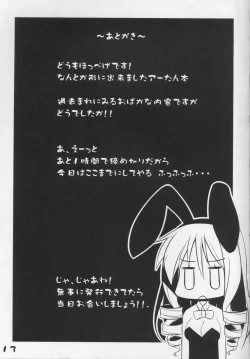 ～あとがき～
どうもほっぺげです!
なんとか形に出来ましたアーたん本
過去まわにみるおばかな内容ですが
どうでしたか!!
あ、えーっと
あと1時間で締めかりだから
今日はここまでにしてやる ふっふっふ・・・
じゃ、じゃあね!
無事に発行できてたら
当日お会いしましょう!!.
17